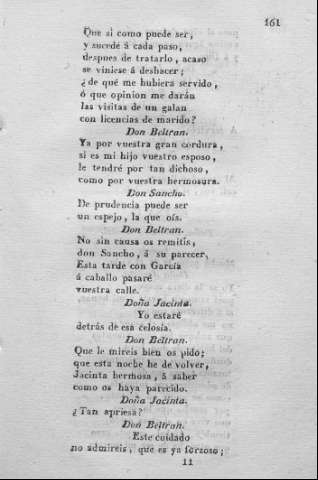 161
Que si como puede ser,
y sucede á cada paso,
despues de tratarlo, acaso
se viniese á deshacer;
¿de qué me hubiera servido,
ó que opinion me darán
las visitas de un galan
con licencias de marido?
Don Beltran.
Ya por vuestra gran cordura,
si es mi hijo vuestro esposo,
le tendré por tan dichoso,
como por vuestra hermosura.
Don Sancho.
De prudencia puede ser
un espejo, la que oís.
Don Beltran.
No sin causa os remitis,
don Sancho, á su parecer.
Esta tarde con García
á caballo pasaré
vuestra calle.
Doña Jacinta.
Yo estaré
detrás de esa celosía.
Don Beltran.
Que le mireis bien os pido;
que esta noche he de volver,
Jacinta hermosa, á saber
como os haya parecido.
Doña Jacinta.
¿Tan apriesa?
Don Beltran.
Este cuidado
no admireis, que es ya forzoso;
11